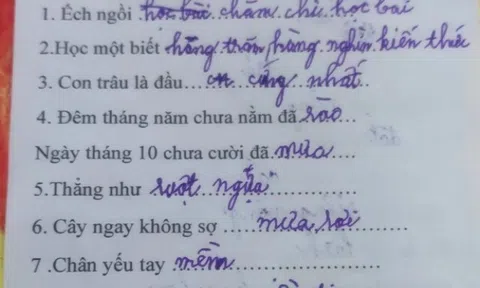 1. Ếch ngồi học bài chăm chỉ học bài
2.Học một biết hằng trăm hàng nghìn kiến thức
3. Con trâu là đầu... cứng nhất..
4. Đêm tháng năm chưa nằm đã rào...
Ngày tháng 10 chưa cười đã.mưa....
5.Thẳng như ruột ngựa...............
6. Cây ngay không sợ .....mưa rơi........
7 .Chân yếu tay mềm.......................